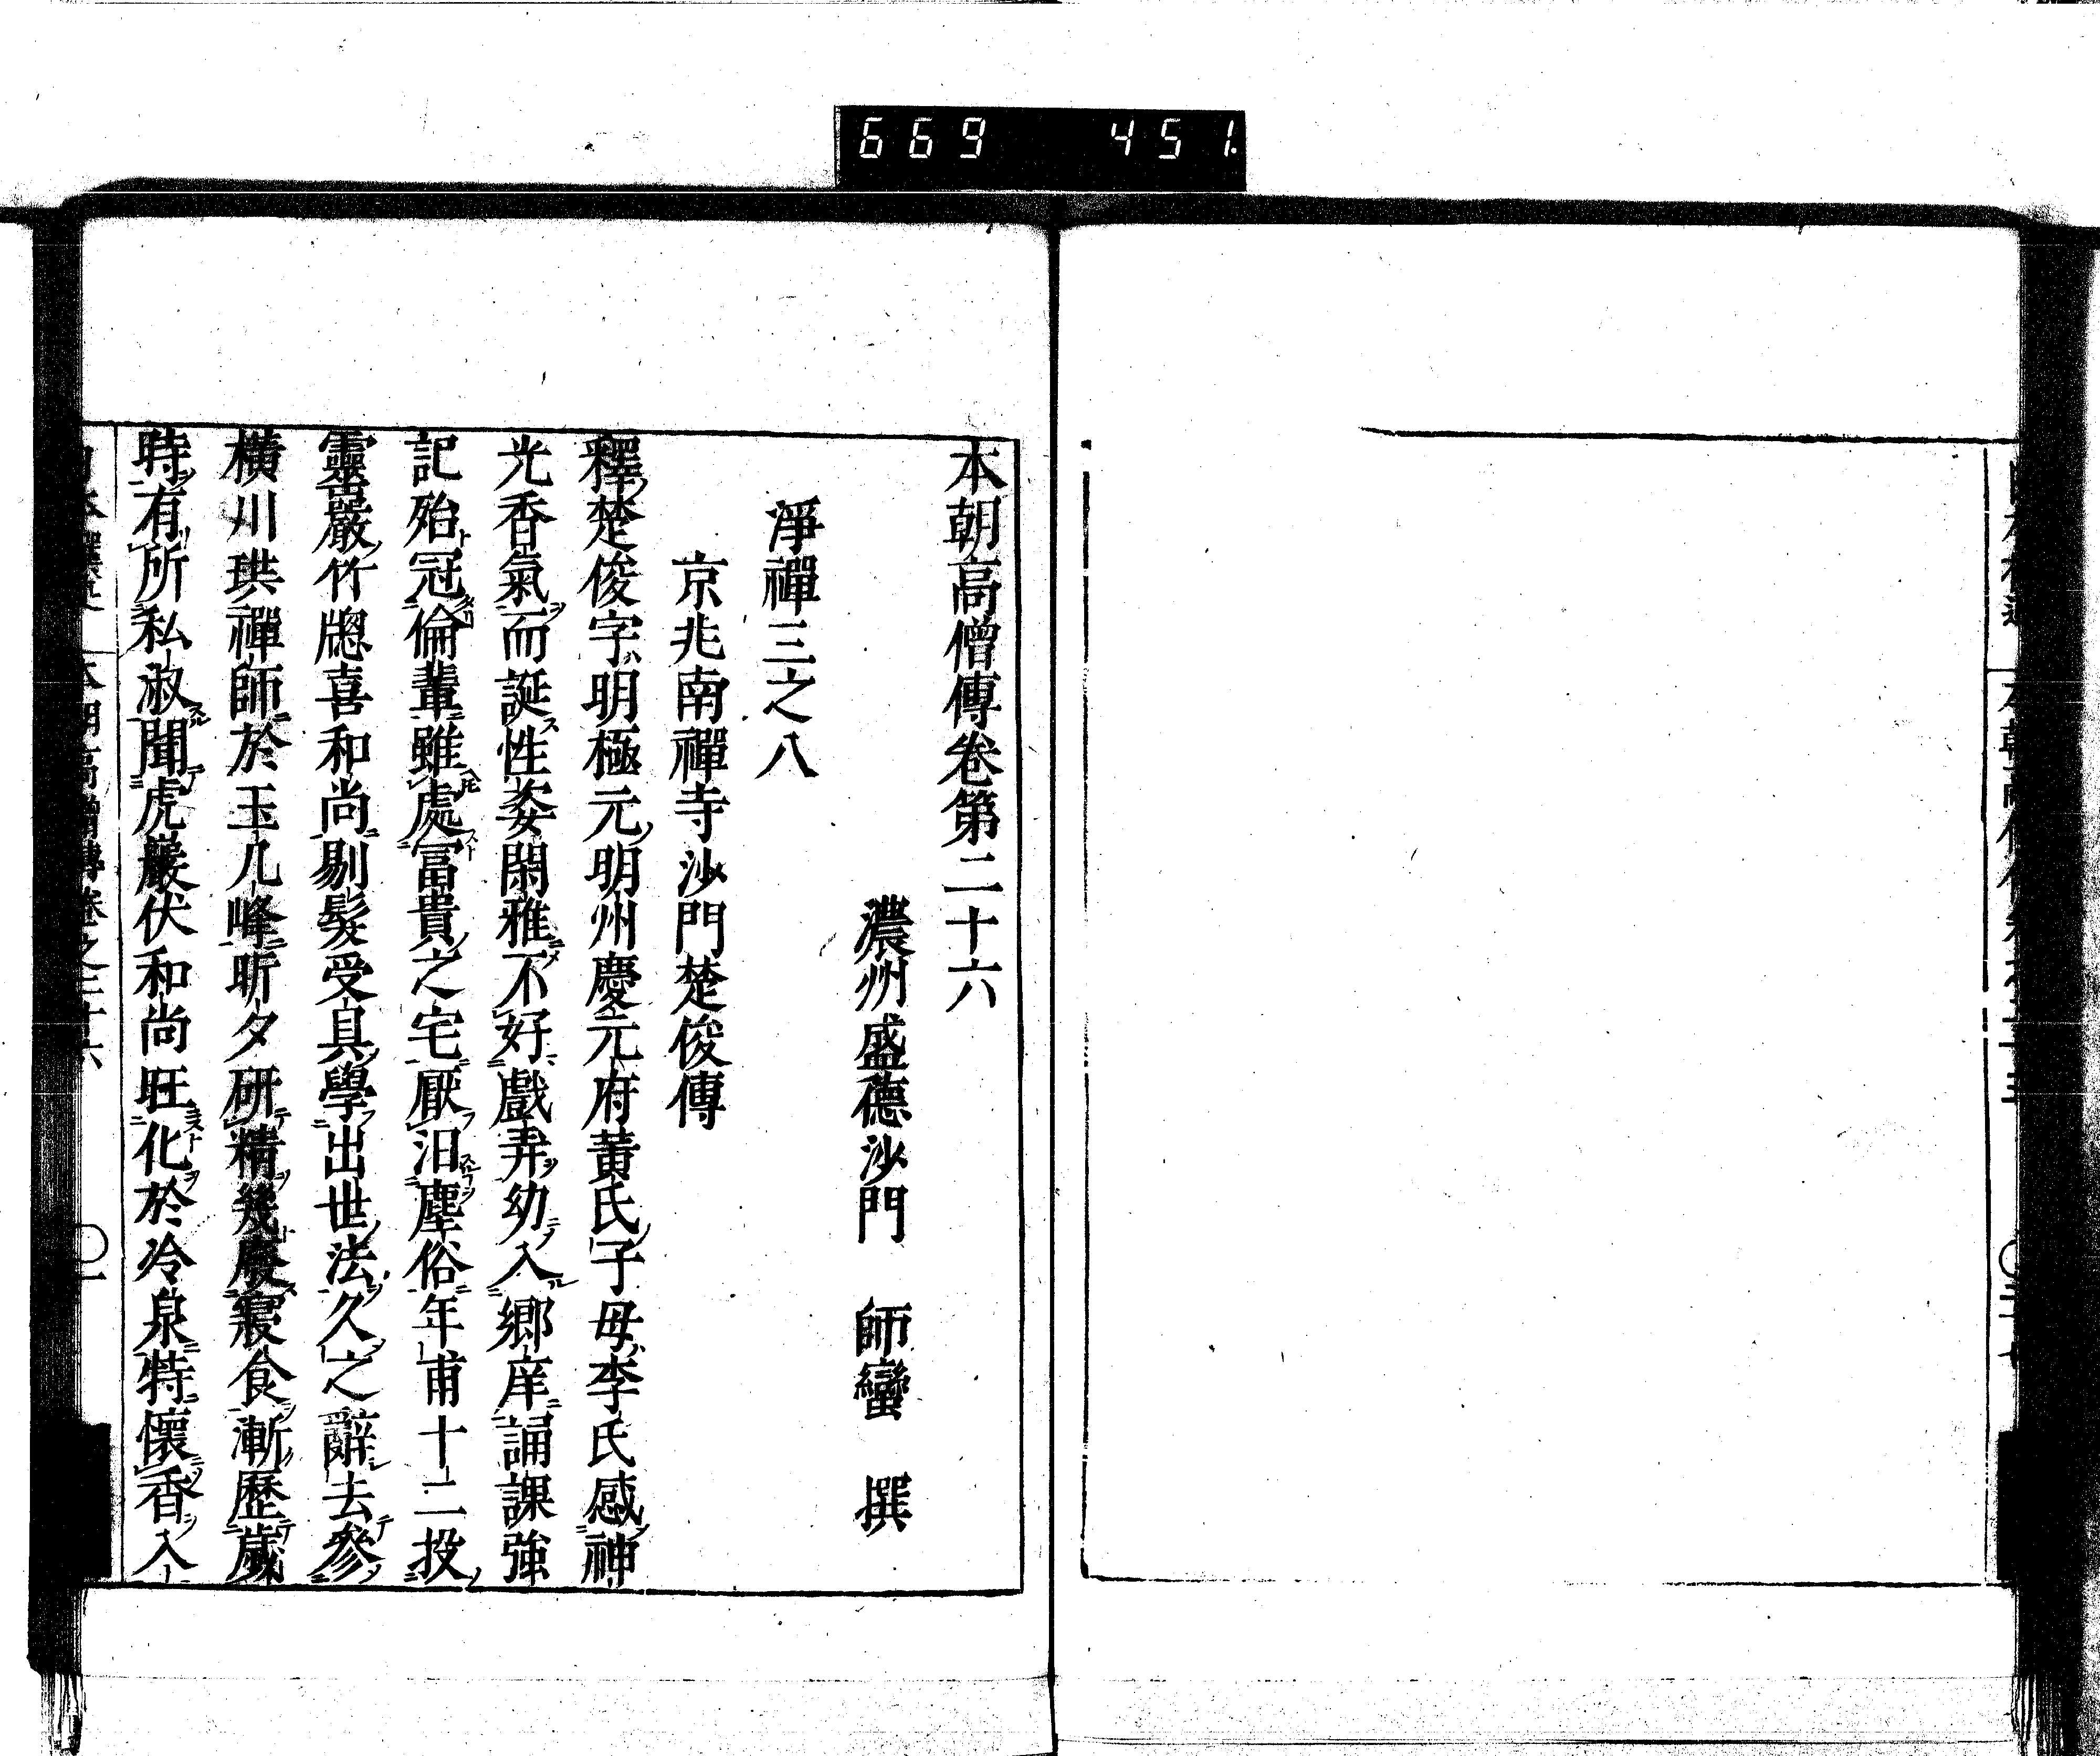 669 451
本朝高僧傳卷第二十六
濃州盛德沙門 師蠻 撰
淨禪三之八
京兆南禪寺沙門楚俊傳
釋楚俊字明極元明州慶元府黃氏子母李氏感神
光香氣而誕性姿閑雅不好戲弄幼入鄉庠誦課強
記殆冠倫輩雖處富貴之宅厭汨塵俗年甫十二投
靈巖竹牕喜和尚剔髮受具學出世法久之辭去參
橫川珙禪師於玉几峰昕夕研精幾廢寢食漸歷歲
時有所私淑聞虎巖伏和尚旺化於冷泉特懷香入